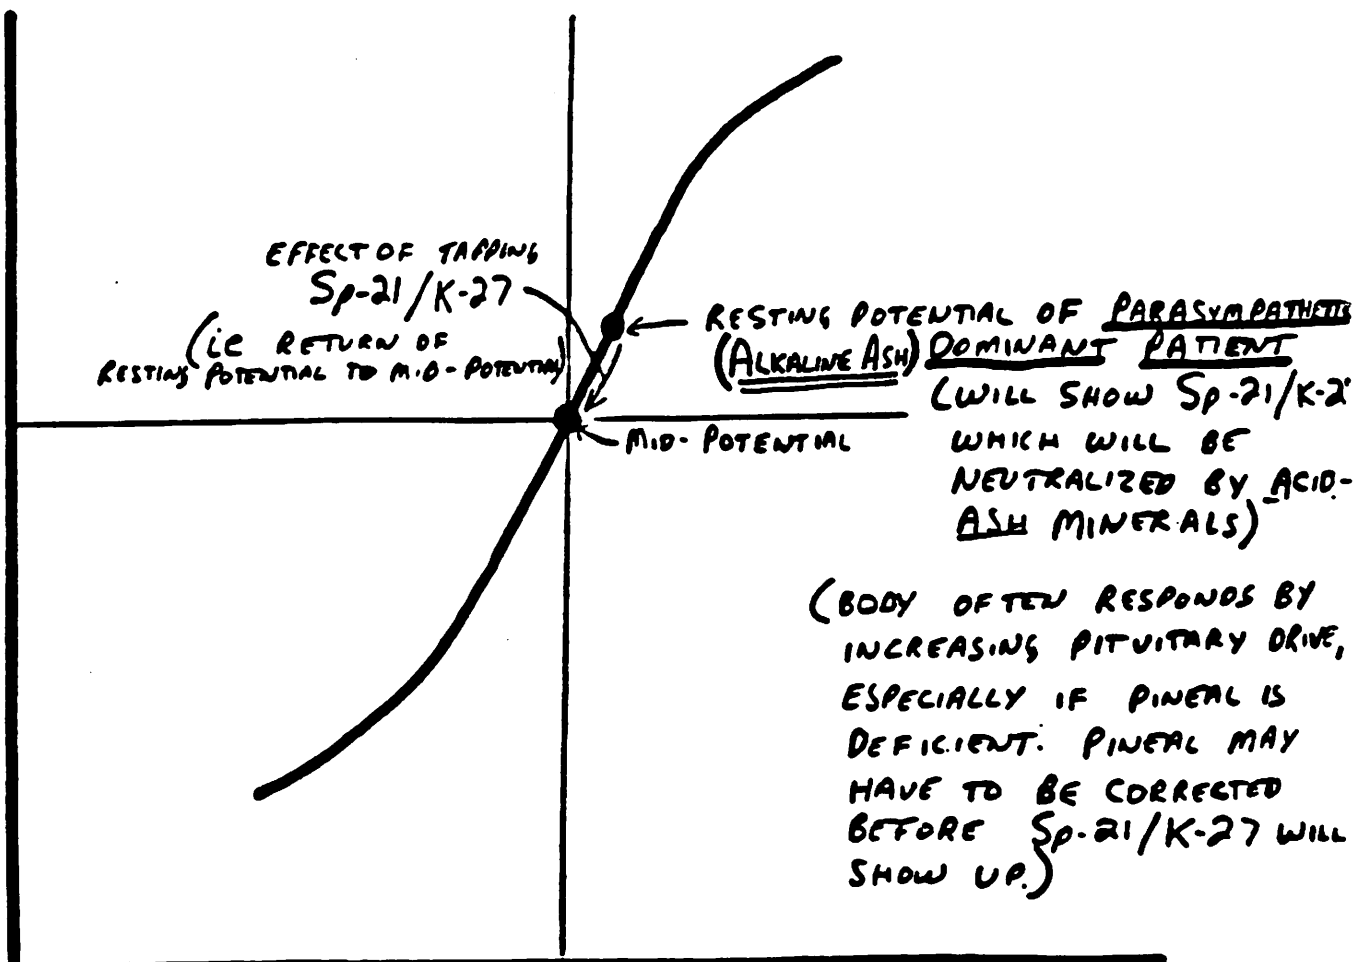 EFFECT OF TAPPING
Sp-21/K-27
(ie RETURN OF
RESTING POTENTIAL TO MID-POTENTIAL)
RESTING POTENTIAL OF PARASYMPATHETIC
(ALKALINE ASH) DOMINANT PATIENT
(WILL SHOW Sp-21/K-2
WHICH WILL BE
NEUTRALIZED BY ACID-
ASH MINERALS)
MID-POTENTIAL
(BODY OFTEN RESPONDS BY
INCREASING PITUITARY DRIVE,
ESPECIALLY IF PINEAL IS
DEFICIENT. PINEAL MAY
HAVE TO BE CORRECTED
BEFORE Sp-21/K-27 WILL
SHOW UP.)